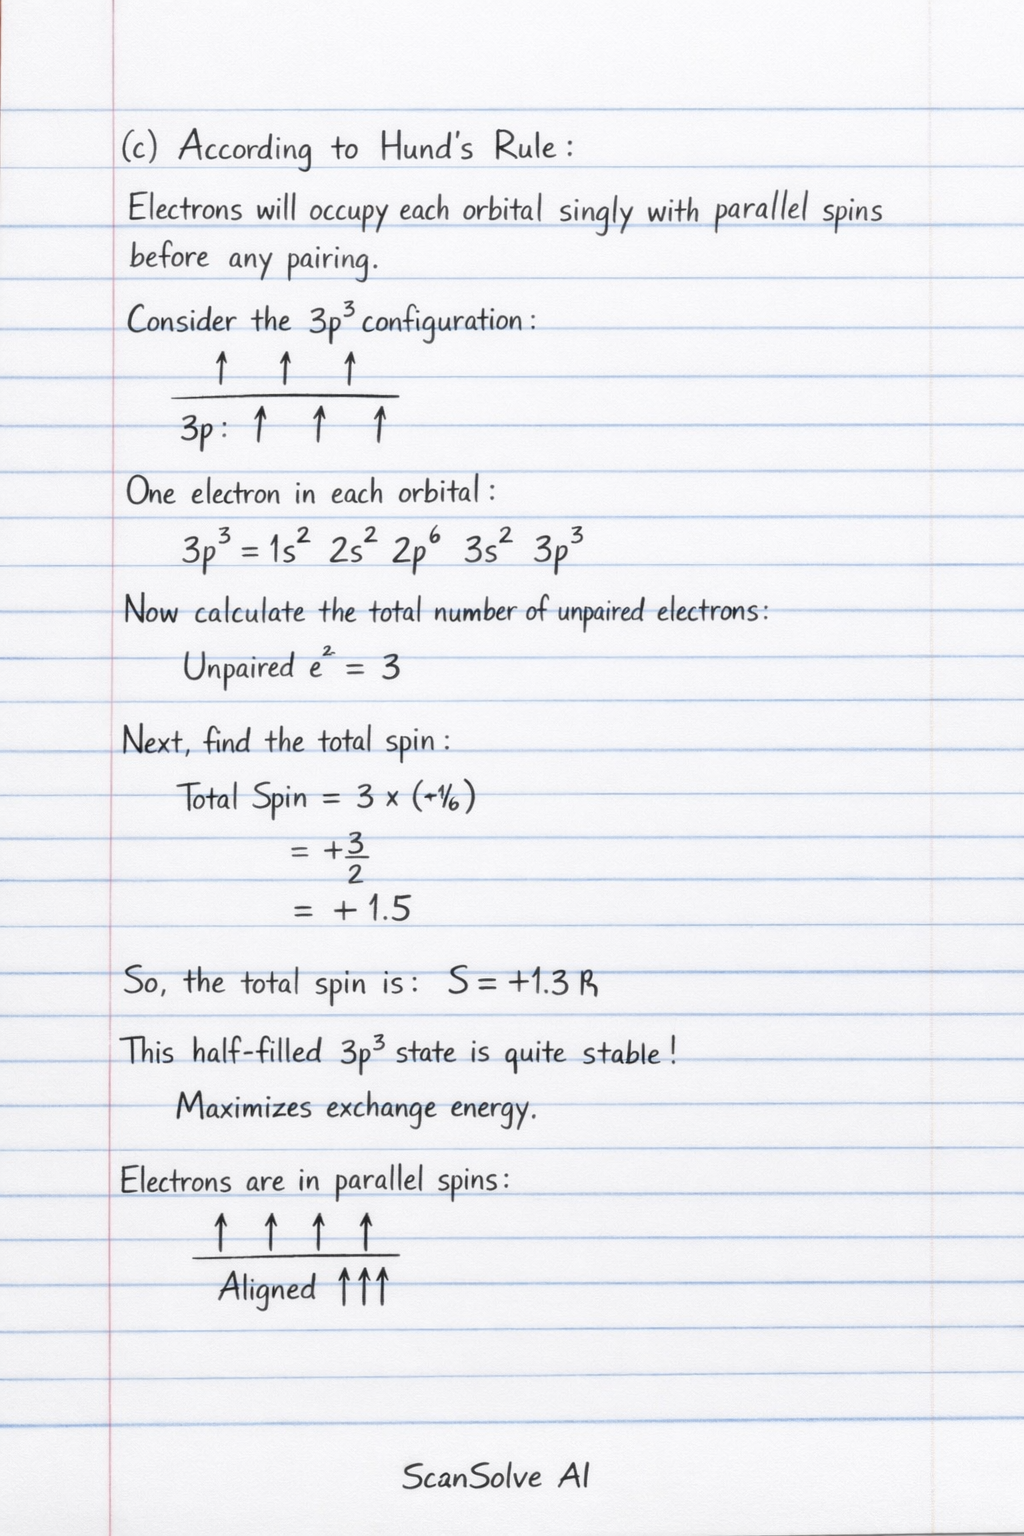 (c) According to Hund's Rule:
Electrons will occupy each orbital singly with parallel spins
before any pairing.
Consider the 3p³ configuration:
↑ ↑ ↑
3p: ↑ ↑ ↑
One electron in each orbital:
3p³ = 1s² 2s² 2p⁶ 3s² 3p³
Now calculate the total number of unpaired electrons:
Unpaired e² = 3
Next, find the total spin:
Total Spin = 3 × (+1/6)
= +3/2
= +1.5
So, the total spin is: S = +1.3
This half-filled 3p³ state is quite stable!
Maximizes exchange energy.
Electrons are in parallel spins:
↑ ↑ ↑ ↑
Aligned ↑↑↑
ScanSolve AI